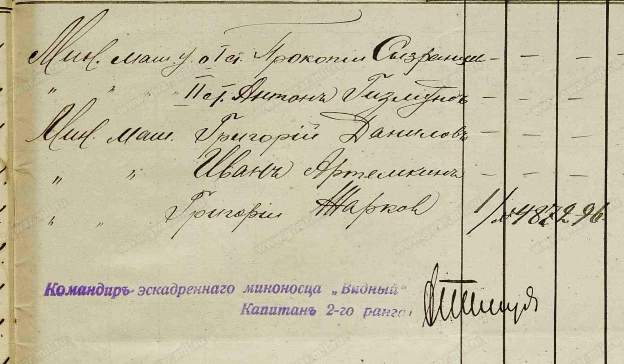 Мин. маш. у. о I ст. Прокопій – – –
„ „ „ II ст. Антонъ – – –
Мин. маш. Григорій Даниловъ – – –
„ „ Иванъ Артемкинъ – – –
„ „ Григорій Жарковъ
Командиръ эскадреннаго миноносца „Видный"
Капитанъ 2-го ранга